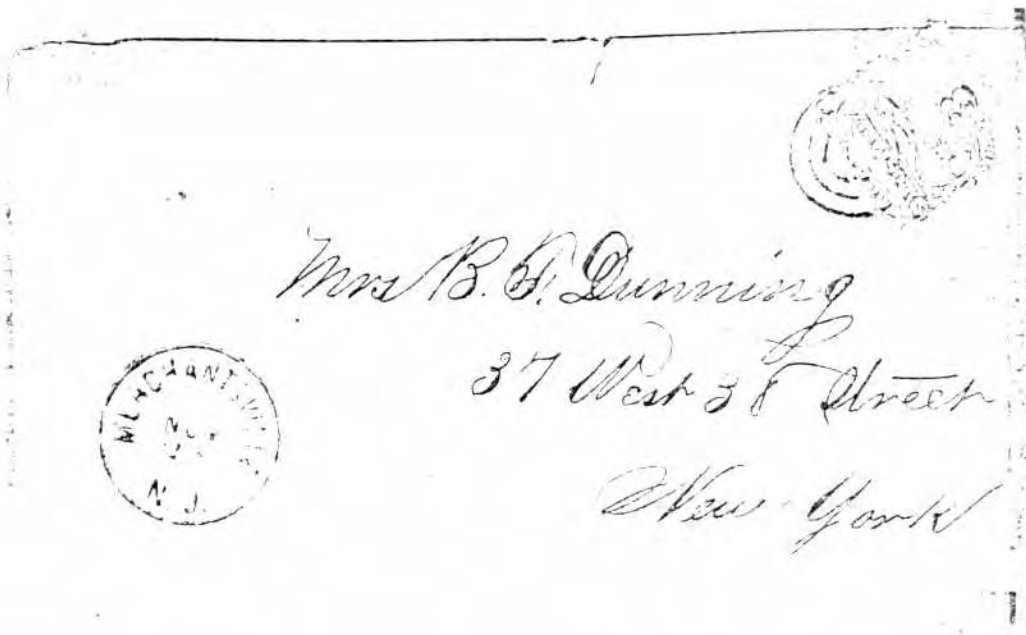 Mrs B. F. Dunning
37 West 38 Street
New York
MERCHANTSVILLE
NOV
N.J.